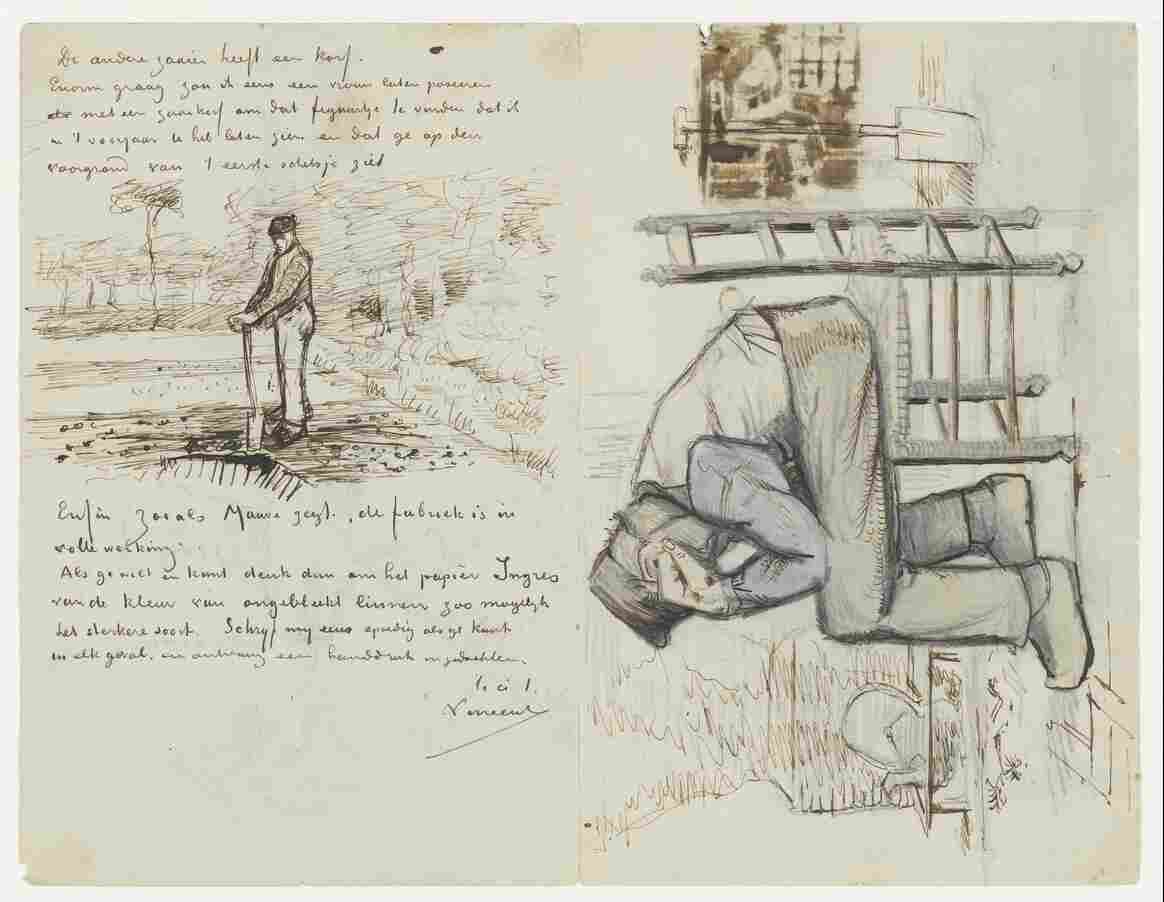 De andere zaaier heeft een korf.
Enorm graag zou ik eens een vrouw laten poseeren
met een zaaikorf om dat figuurtje te vinden dat ik
u 't voorjaar heb laten zien en dat ge op den
voorgrond van 't eerste schetsje ziet
Enfin zooals Mauve zegt, de fabriek is in
volle werking.
Als ge wilt en kunt denk dan om het papier Ingres
van de kleur van ongebleekt linnen zoo mogelijk
het sterkere soort. Schrijf mij eens spoedig als ge kunt
in elk geval. en ontvang een handdruk in gedachten.
t. à t.
Vincent